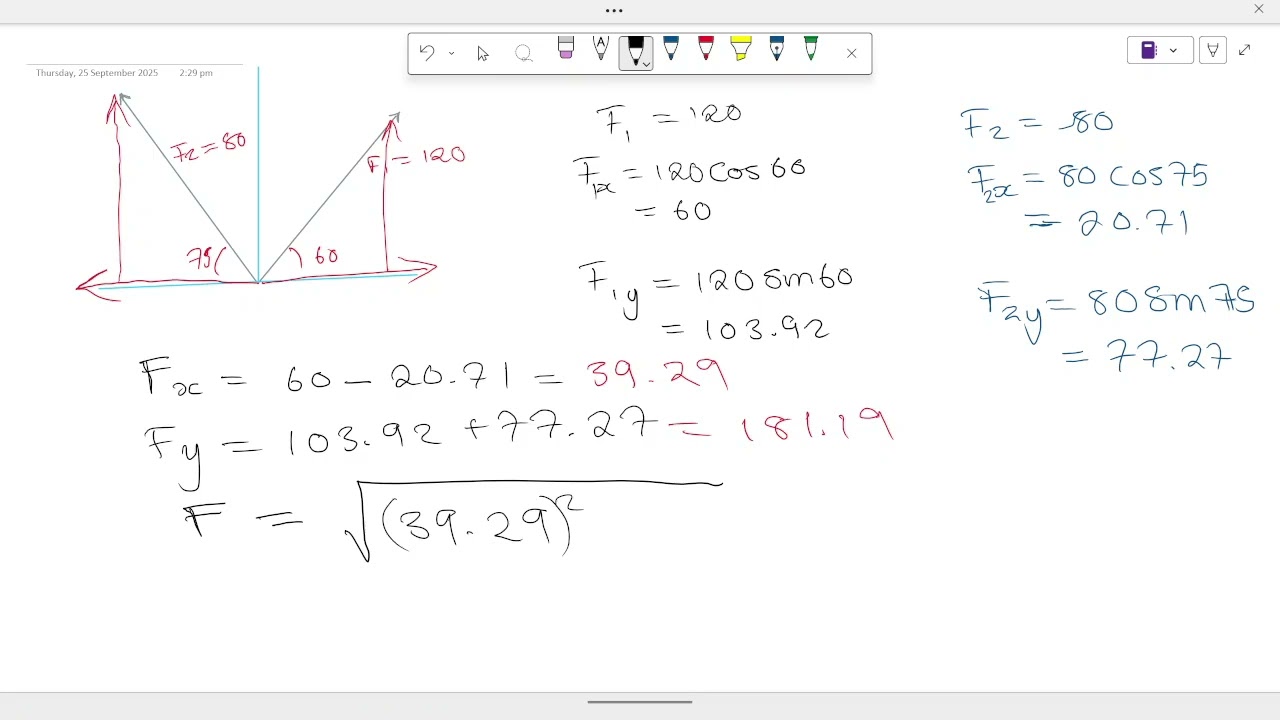 Thursday, 25 September 2025 2:29 pm
F₂ = 80
F₁ = 120
75
60
F₁ = 120
F₁ₓ = 120 cos 60
= 60
F₁y = 120 sin 60
= 103.92
F₂ = 80
F₂ₓ = 80 cos 75
= 20.71
F₂y = 80 sin 75
= 77.27
Fₓ = 60 - 20.71 = 39.29
Fy = 103.92 + 77.27 = 181.19
F = √(39.29)²